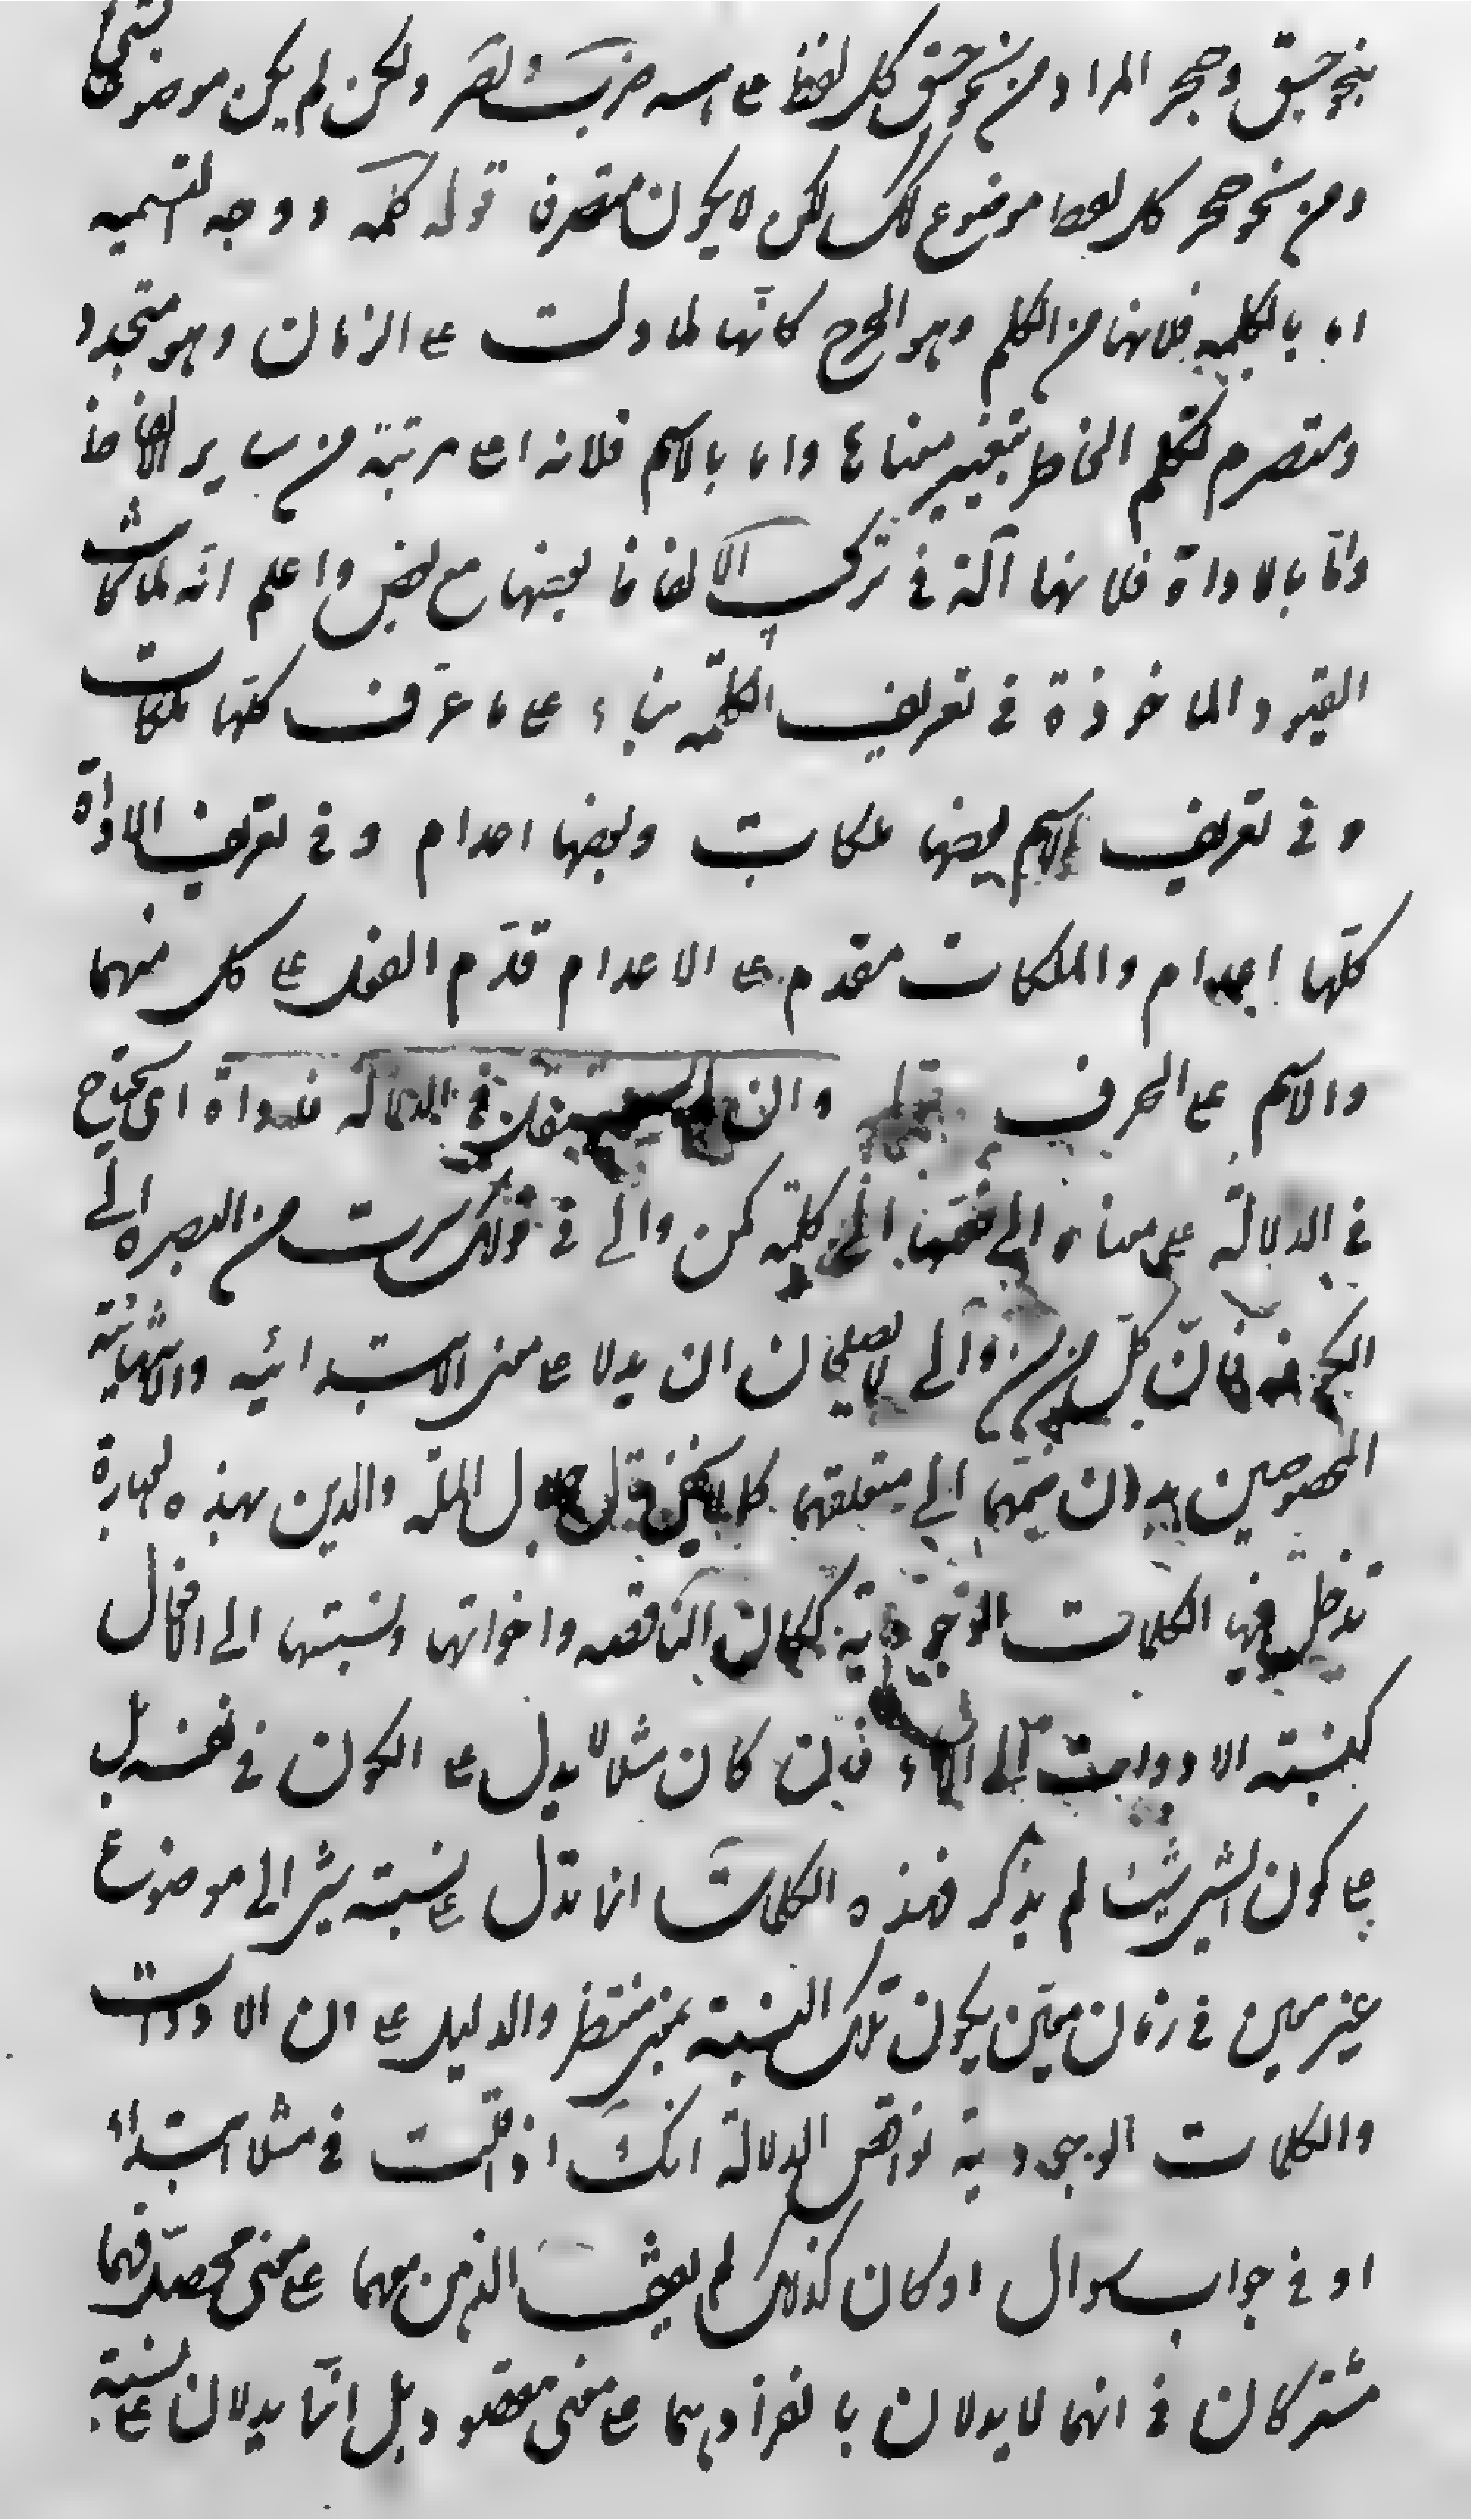 بنحو جسق وحجر المراد من نحو جسق كل لفظ على هيئة ضرب نصر ولكن لم يكن موضوعا لشئ
ومن نحو حجر كل لفظ موضوع كك لكن لا يكون متصرفا قوله كلمه ووجه التسميه
اما بالكلمه فلانها من الكلم وهو الجرح كانها لما دلت على الزمان وهو متجدد
ومتصرم تكلم الخاطر بتغير معناها واما بالاسم فلانه اعلى مرتبة من ساير الالفاظ
وامّا بالاداة فلانها آلة في تركيب الالفاظ بعضها مع بعض واعلم انه لما كانت
القيود الماخوذة في تعريف الكلمه بناء على ما عرف كلها ملكات
وفي تعريف الاسم بعضها ملكات وبعضها اعدام وفي تعريف الاداة
كلّها اعدام والملكات مقدم على الاعدام قدّم الفعل على كل منهما
والاسم على الحرف قوله والا في الدلالة فهو اداة اى يحتاج
في الدلالة على معناه الى كلمة كمن والى في قولك سرت من البصره الى
الكوفه فانّ كلّ من من والى لا يصلحان ان يدلا على معنى الابتدائيه والانتهائية
المخصوصين بدون ضمهما الى متعلقهما كما لا يخفى قال جلال الملّه والدين بهذه العبارة
تدخل فيها الكلمات الوجودية ككان الناقصه واخواتها ونسبتها الى الافعال
كنسبة الادوات الى الاسماء فان كان مثلا لا يدل على الكون في نفسه بل
على كون الشئ شيئا لم يذكر فهذه الكلمات انما تدل على نسبة شئ الى موضوع
غير معين في زمان معين يكون تلك النسبة بخبر منتظر والدليل على ان الادوات
والكلمات الوجودية نواقص الدلالة انك اذا قلت في مثلا ابتداء
او في جواب سوال او كان كذلك لم يقف الذهن معهما على معنى محصل فهما
مشتركان في انهما لا يدلان بانفرادهما على معنى مقصود بل انما يدلان على نسبة